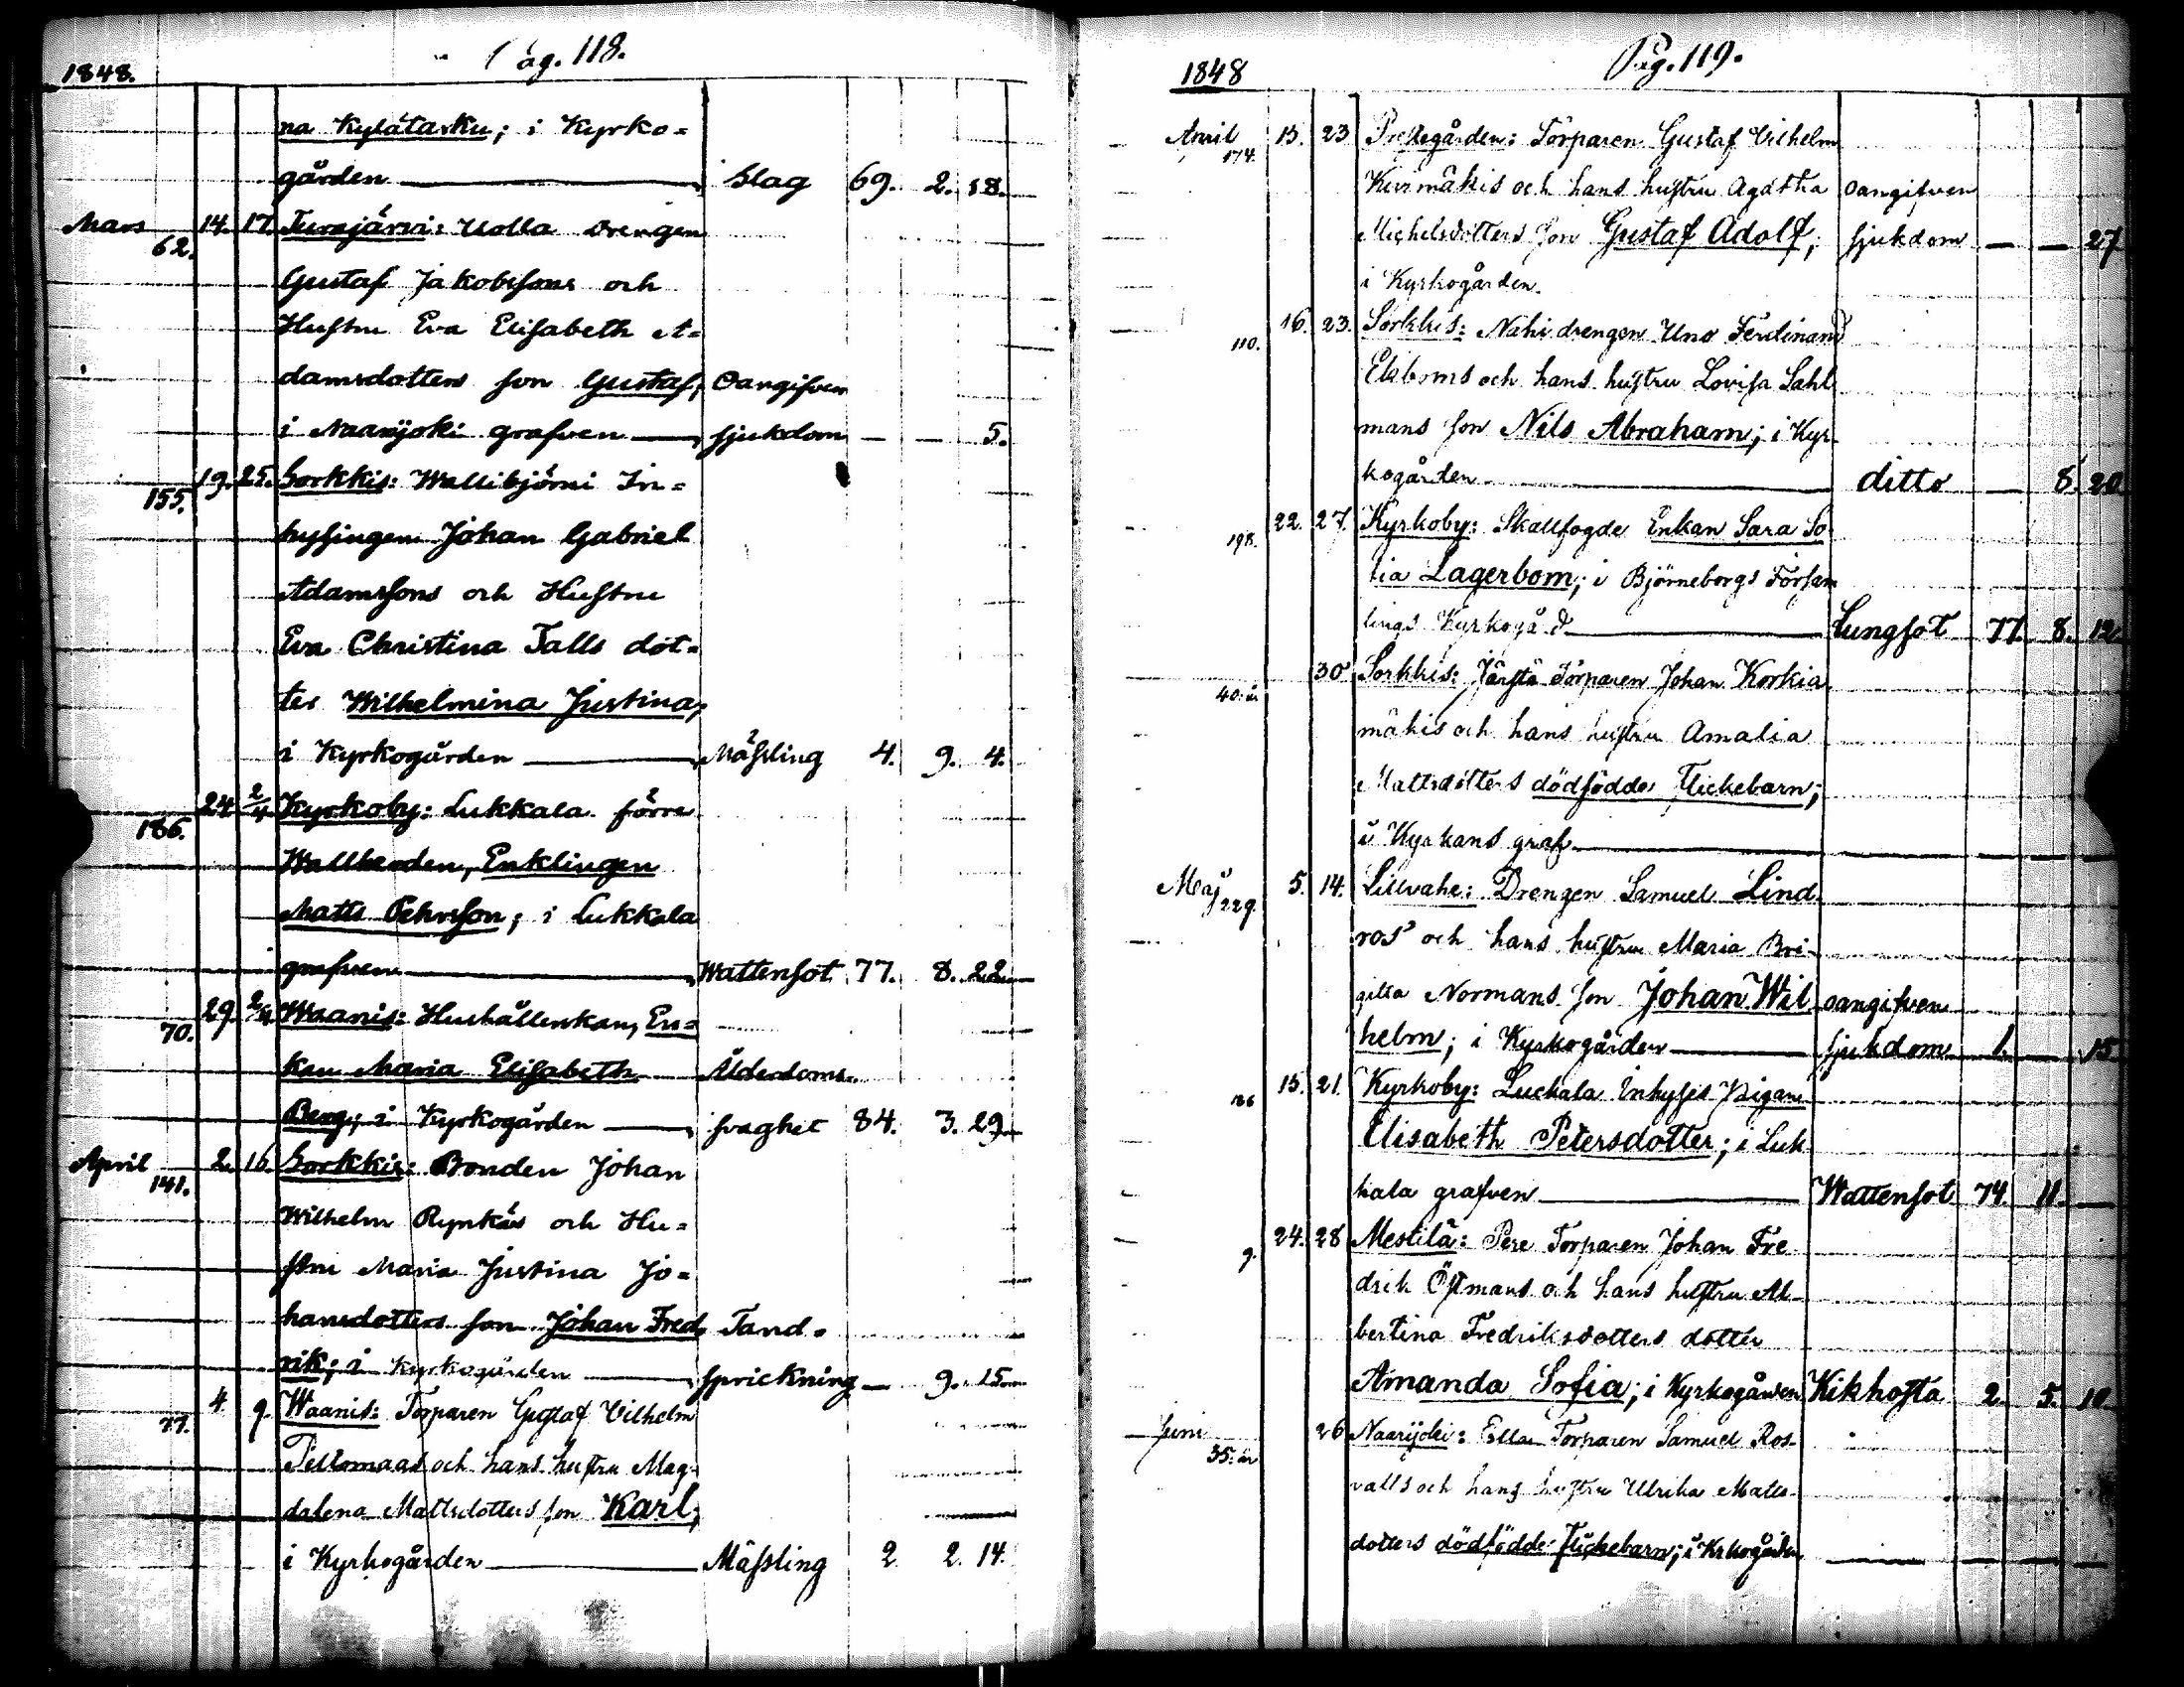 1848. Pag. 118.
na Kylätasku; i Kyrko=
gården Slag 69. 2. 18.
Mars 14. 17. Turajärvi: Uolla Drengen
62.
Gustaf Jakobssons och
Hustru Eva Elisabeth A=
damsdotters son Gustaf; Oangifven
i Naarijoki grafven sjukdom — — 5.
19. 25. Sorkkis: Wallibjörni In=
155.
hysingen Johan Gabriel
Adamssons och Hustru
Eva Christina Talls dot=
ter Wilhelmina Justina;
i Kyrkogården Mässling 4. 9. 4.
24 2/4 Kyrkoby: Lukkala förre
186.
Wallherden, Enklingen
Matts Pehrsson; i Lukkala
grafven Wattensot 77. 8. 22.
29. 2/4 Waanis: Hushållerskan, En=
70.
kan Maria Elisabeth Ålderdoms-
Berg; i Kyrkogården svaghet 84. 3. 29.
April 2. 16. Sorkkis: Bonden Johan
141.
Wilhelm Rynkäs och Hu=
stru Maria Justina Jo=
hansdotters son Johan Fred Tand-
rik; i Kyrkogården sprickning — 9. 15.
4 9. Waanis: Torparen Gustaf Vilhelm
77.
Peltomaas och hans hustru Mag-
dalena Mattsdotters son Karl;
i Kyrkogården Mässling 2 2. 14.
1848 Pag. 119.
April 15. 23 Prestegården: Torparen Gustaf Vilhelm
174.
Kuirmäkis och hans hustru Agatha oangifven
Michelsdotters son Gustaf Adolf; sjukdom — — 27
i Kyrkogården.
16. 23. Sorkkis: Nahi drengen Uno Ferdinand
110.
Ekboms och hans hustru Lovisa Sahl
mans son Nils Abraham; i Kyr-
kogården ditto — 8. 20.
22. 27. Kyrkoby: Skallfogde Enkan Sara So
198.
fia Lagerbom; i Björneborgs Försam
lings Kyrkogå d Lungsot 77. 8. 12
30 Sorkkis: Järstä Torparen Johan Korkia
40. år
mäkis och hans hustru Amalia
Mattsdotters dödfödda Flickebarn;
i Kyrkans graf
Maj 5. 14. Lillvahe: Drengen Samuel Lind
229.
ros' och hans hustru Maria Bri-
gitta Normans son Johan Wil oangifven
helm; i Kyrkogården sjukdom 1. — 15.
15. 21. Kyrkoby: Luckala Inhyses Pigan
186
Elisabeth Petersdotter; i Luk
kala grafven Wattensot 74. 11. —
24. 28 Mestilä: Pere Torparen Johan Fre
9.
drik Östmans och hans hustru Al-
bertina Fredriksdotters dotter
Amanda Sofia; i Kyrkogården Kikhosta 2. 5. 10.
Juni 26 Naarijoki: Torparen Samuel Ros-
35. år
valls och hans hustru Ulrika Matts-
dotters dödfödde Flickebarn; i Krkogården